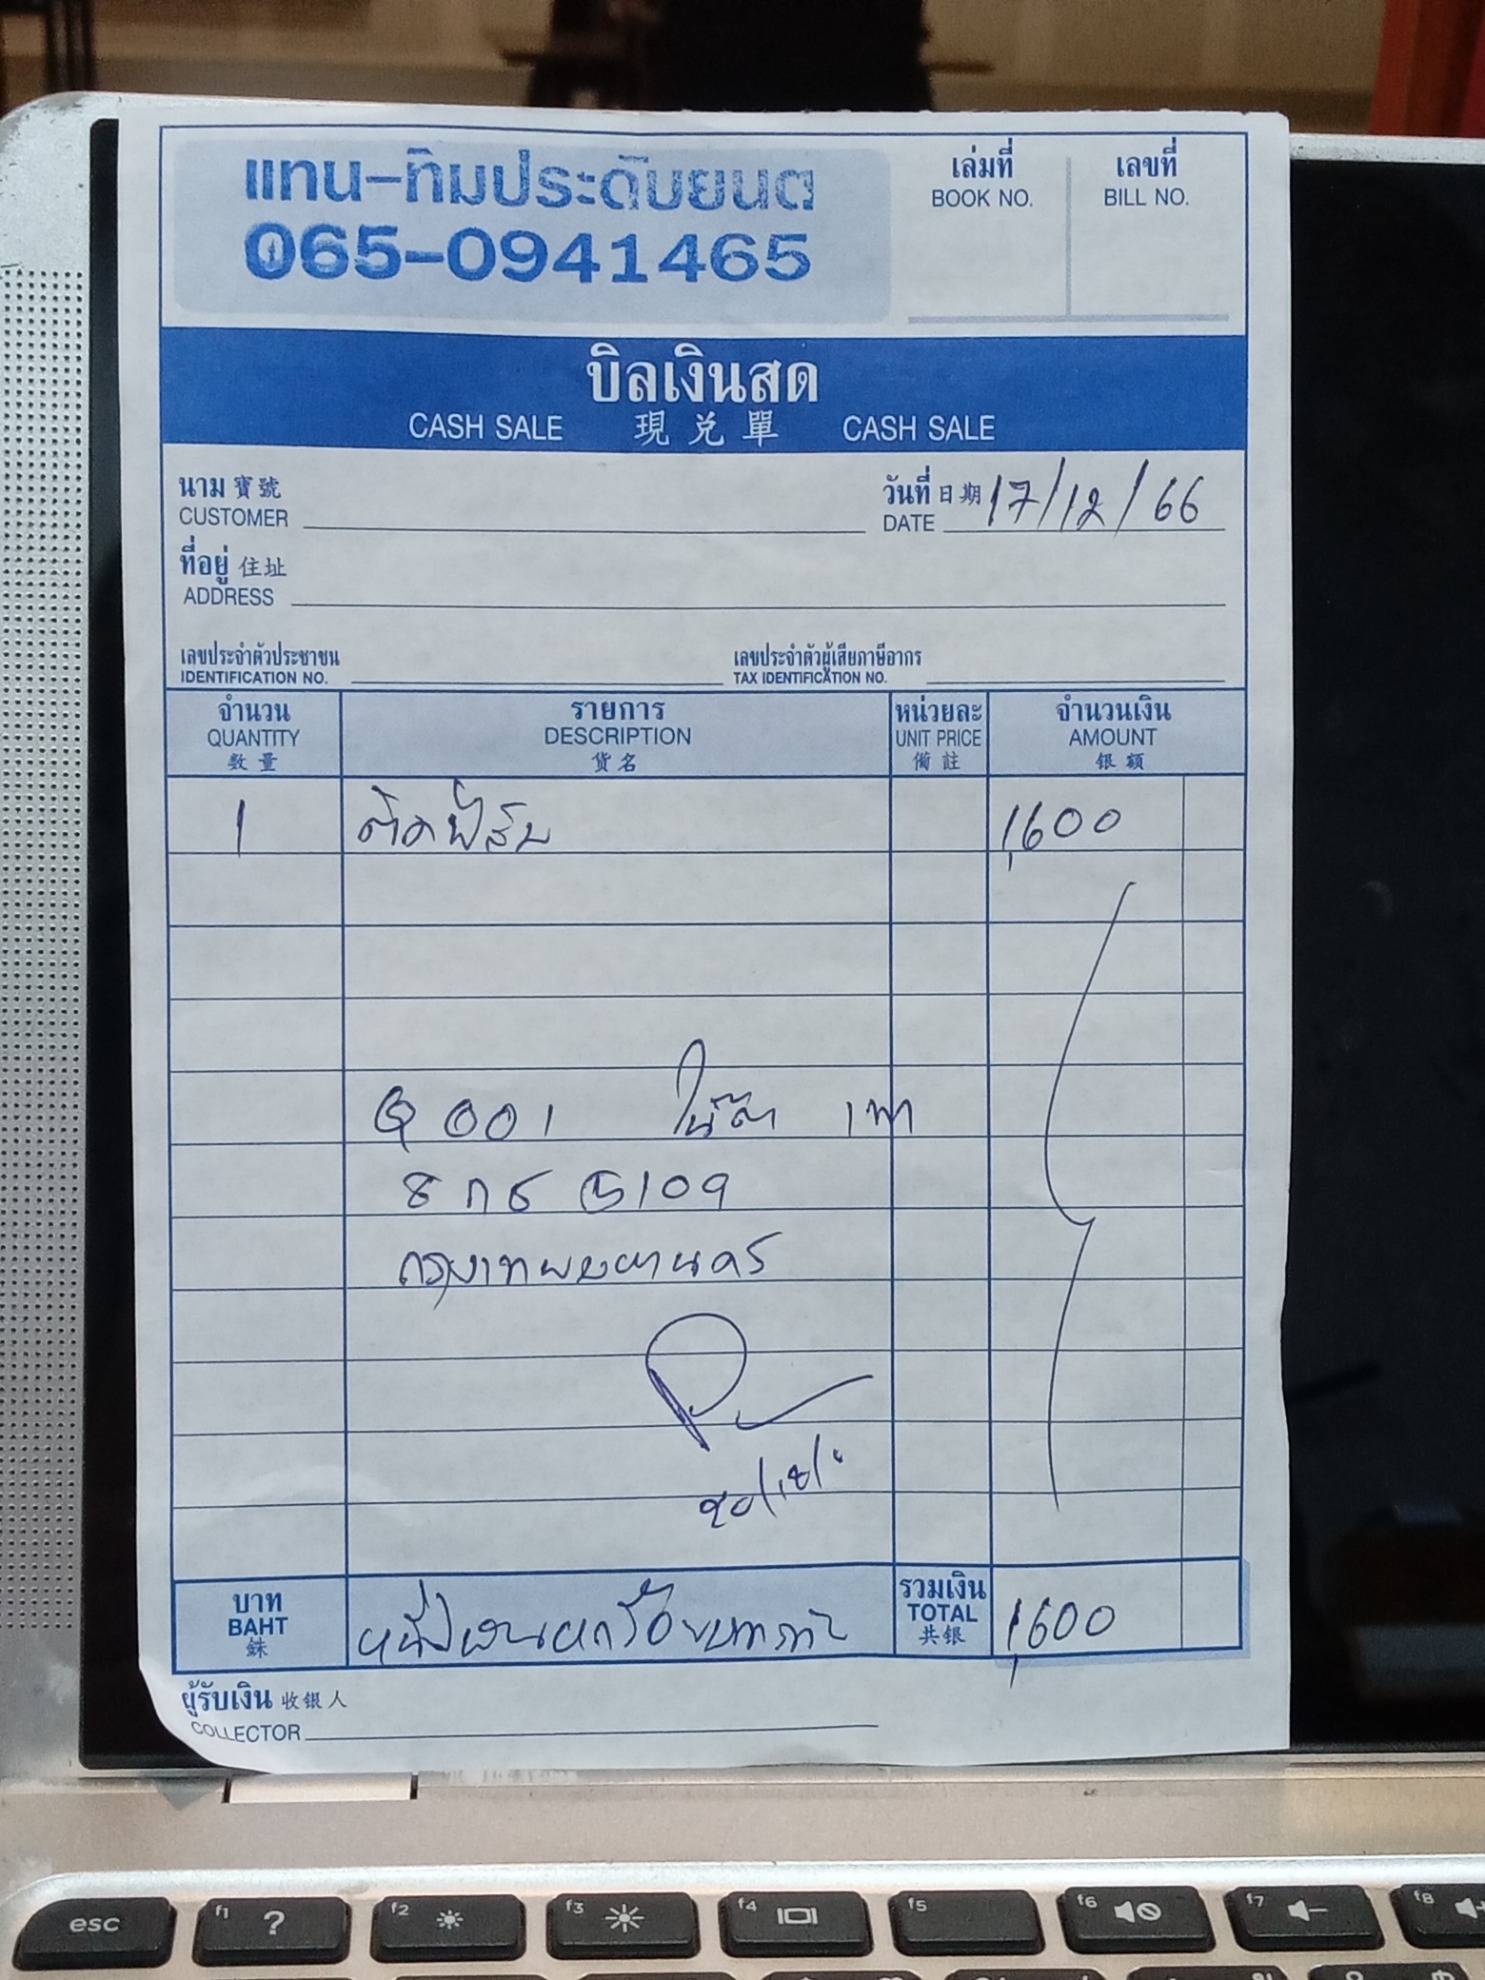 แทน-ทิมประดับยนต์
065-0941465
เล่มที่
BOOK NO.
เลขที่
BILL NO.
บิลเงินสด
CASH SALE 現兑單 CASH SALE
นาม 寶號
CUSTOMER
วันที่ 日期 17/12/66
DATE
ที่อยู่ 住址
ADDRESS
เลขประจำตัวประชาชน
IDENTIFICATION NO.
เลขประจำตัวผู้เสียภาษีอากร
TAX IDENTIFICATION NO.
จำนวน
QUANTITY
数量
รายการ
DESCRIPTION
货名
หน่วยละ
UNIT PRICE
備註
จำนวนเงิน
AMOUNT
银额
1 ติดฟิล์ม 1,600
Q 001
8 กธ 5109
กรุงเทพมหานคร
บาท
BAHT
銖
หนึ่งพันหกร้อยบาทถ้วน
รวมเงิน
TOTAL
共银
1,600
ผู้รับเงิน 收银人
COLLECTOR
esc
f1 ?
f2
f3
f4
f5
f6
f7
f8